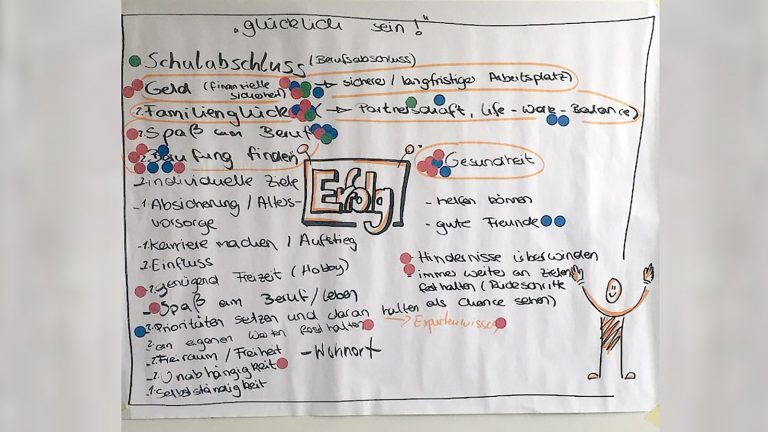 „glücklich sein!"
Schulabschluss (Berufsabschluss)
Geld (finanzielle Sicherheit) → sicherer / langfristiger Arbeitsplatz
2. Familienglück → Partnerschaft, Life-Work-Balance
2. Spaß am Beruf
2. Berufung finden
Gesundheit
2. individuelle Ziele
Erfolg
-1. Absicherung / Alters-
vorsorge
- helfen können
- gute Freunde
-1. Karriere machen / Aufstieg
2. Einfluss
- Hindernisse überwinden
immer weiter an Zielen
festhalten (Rückschritte
als Chance sehen)
1. genügend Freizeit (Hobby)
- Spaß am Beruf/Leben
2. Prioritäten setzen und daran halten
→ Expertenwissen
2. an eigenen Werten festhalten
2. Freiraum / Freiheit
- Wohnort
-2. Unabhängigkeit
1. Selbstständigkeit